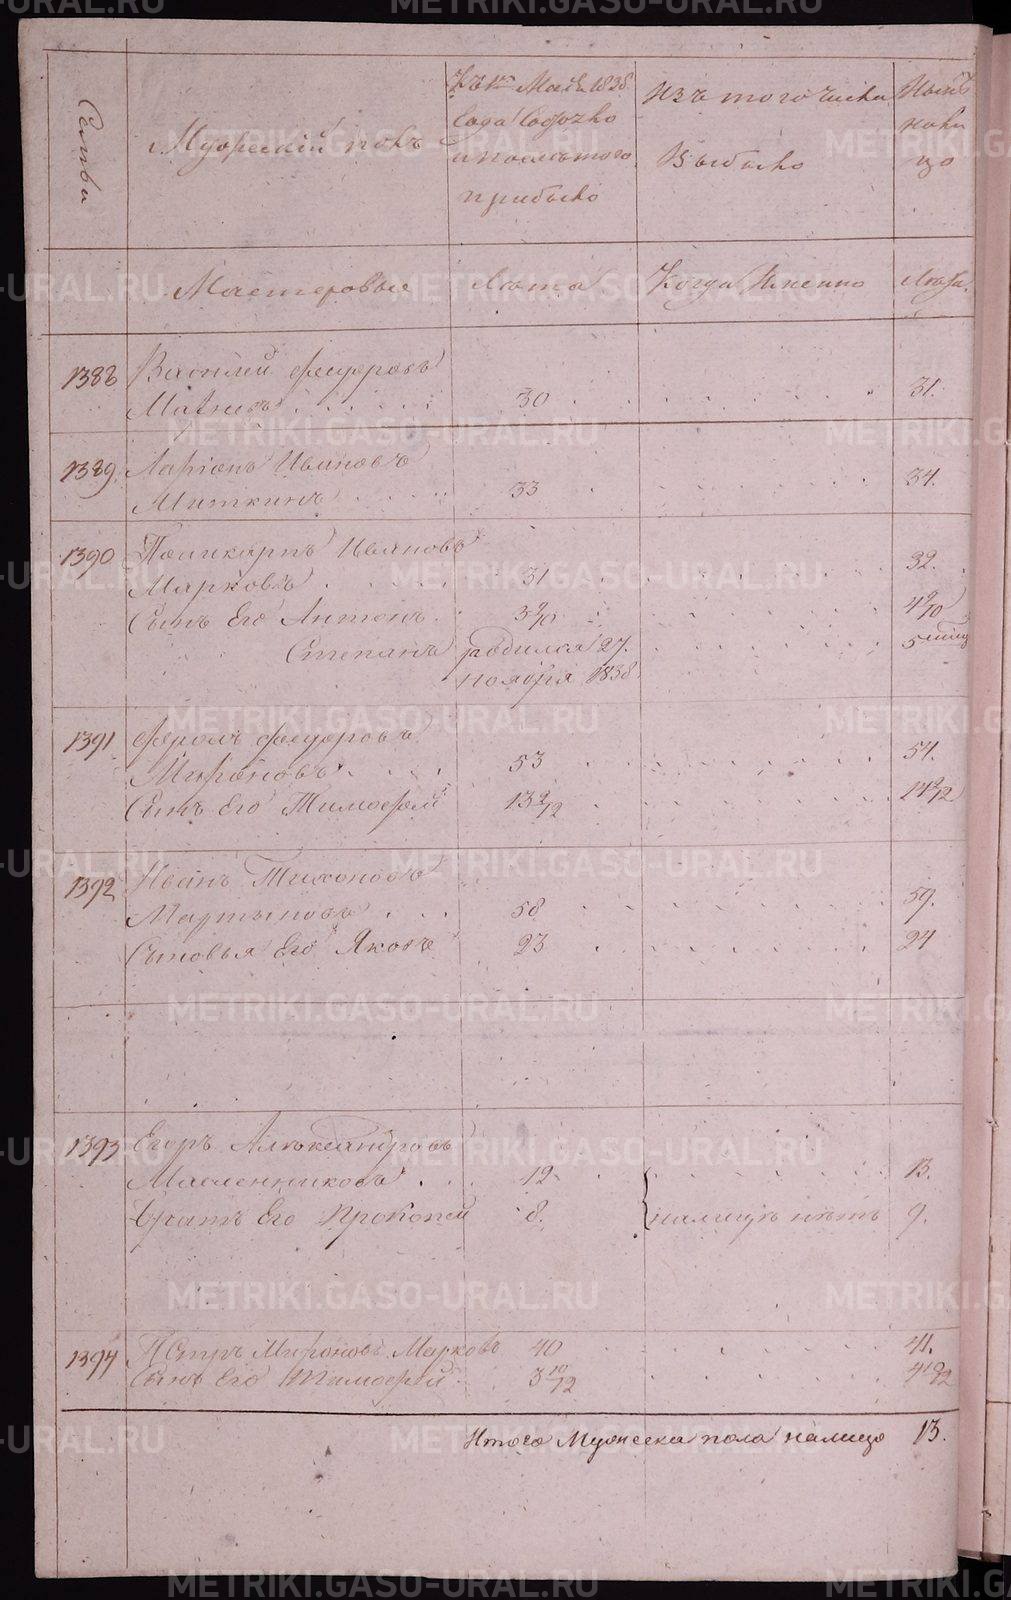 Семьи
Мужескій полъ
Къ 1му Маія 1838
года состояло
и после того
прибыло
Изъ того числа
Выбыло
Ныне
нали
цо
Мастеровые
Лета
Когда Именно
Лета.
1388 Василей Федоровъ
30 31.
1389. Ларіонъ Ивановъ
Миткинъ 33 34.
1390 Поликарпъ Ивановъ
Марковъ 31 32.
Сынъ Его Антонъ
Степанъ родился 27.
ноября 1838
1391 Федоровъ
Мироновъ 53 54.
Сынъ Его Тимофей 13 9/12 14 9/12
1392 Иванъ Тихоновъ
Мартыновъ 58 59.
Сыновья Его Яковъ 23 24
1393 Егоръ Александровъ
Масленниковъ 12 13.
братъ Его Прокопей 8. налицо нетъ 9.
1394 Петръ Мироновъ Марковъ 40 41.
Сынъ Его Тимофей 3 10/12 4 10/12
Итого Мужеска пола налицо 13.
METRIKI.GASO-URAL.RU